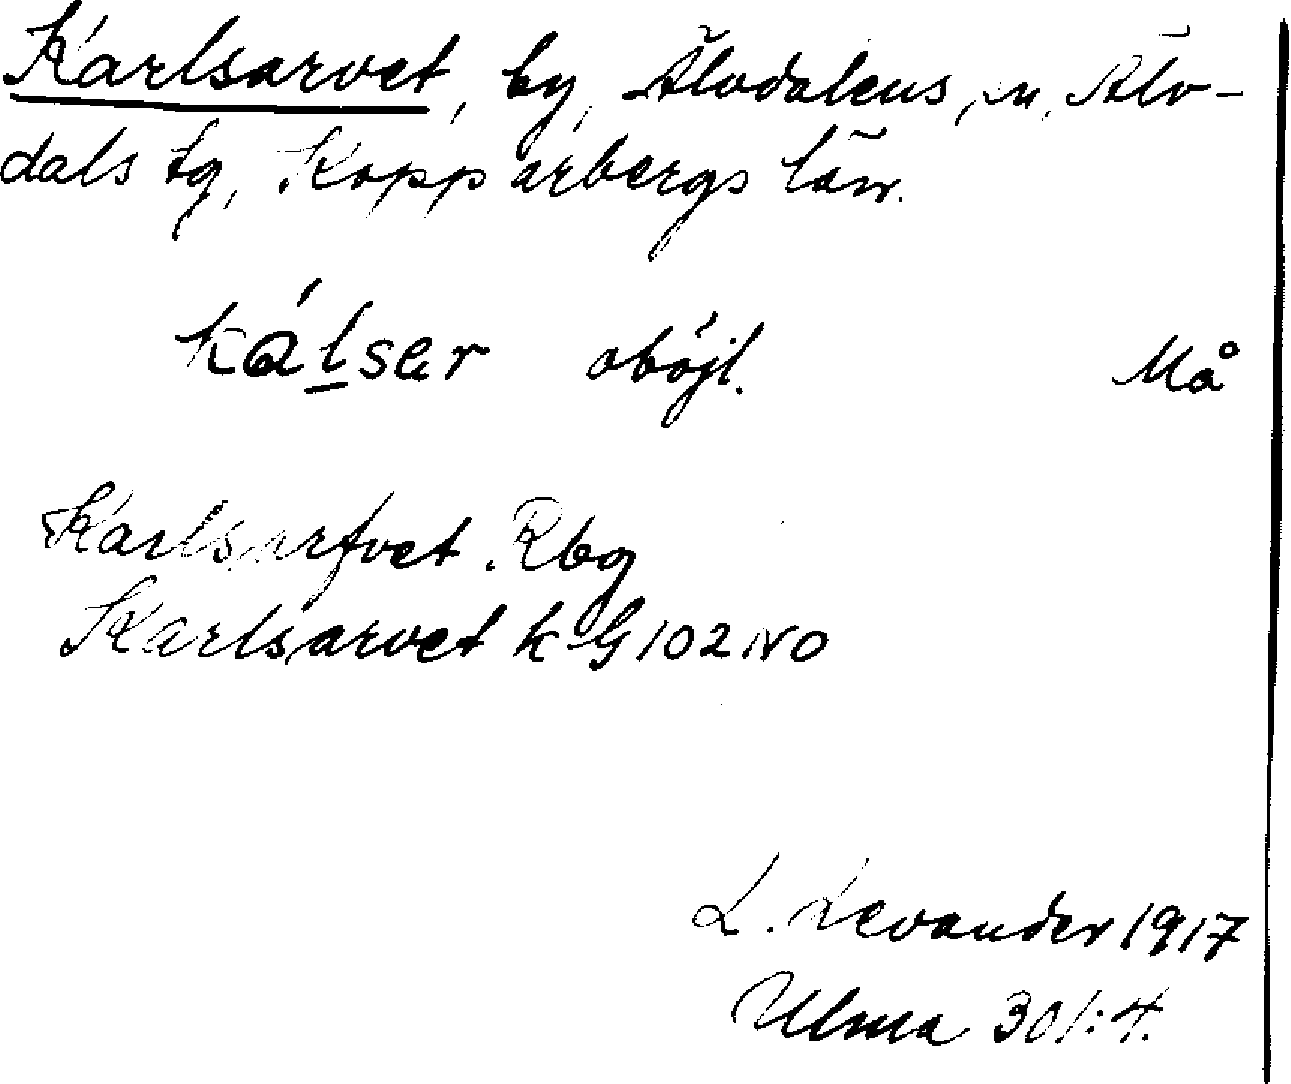 Karlsarvet, by, Älvdalens sn, Älv-
dals tg, Kopparbergs län.
kálsär oböjl. Må
Karlsarfvet. Rbg
Karlsarvet k G 102 NO
L. Levander 1917
Ulma 301:4.